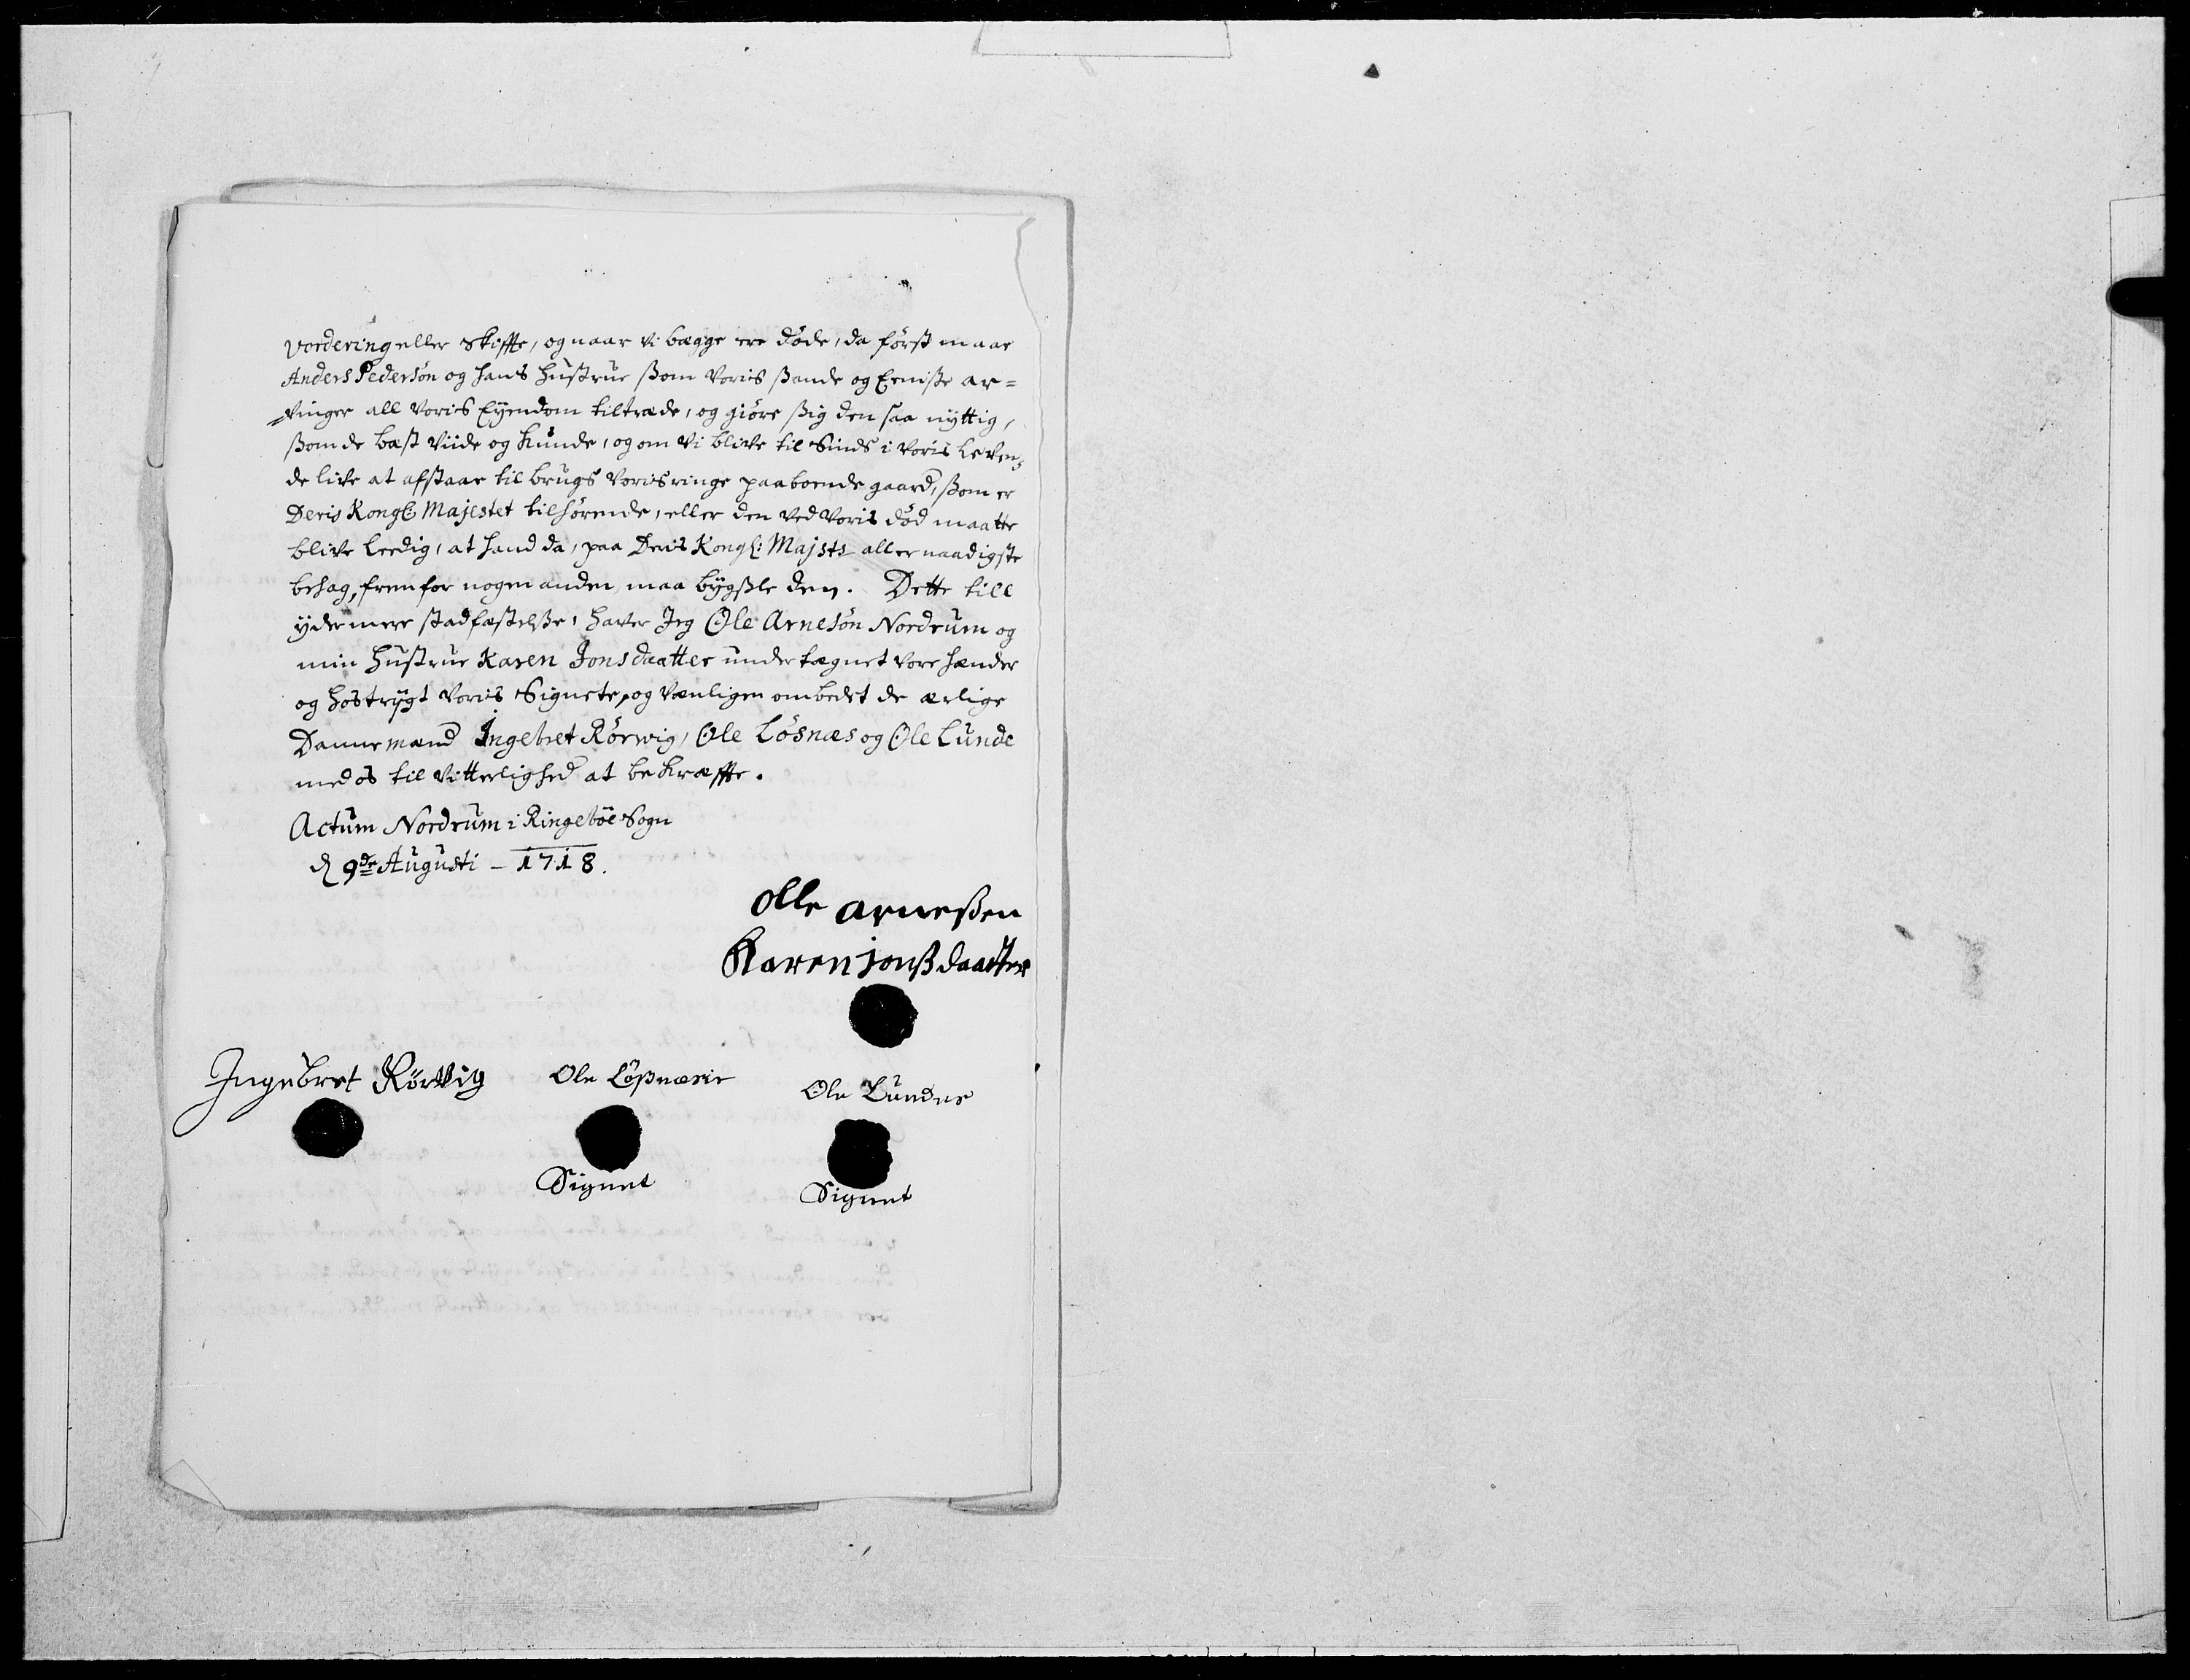 vordering eller skiffte, og naar vi bægge ere døde, da først maae
Anders Pedersøn og hans hustrue ßom voris ßande og Eeniste ar=
=vinger all voris Eyendom tiltræde, og giøre ßig den saa nyttig,
ßom de bæst viide og kunde, og om vi blive til Sinds i voris leven=
de live at afstaae til brugs voris ringe paaboende gaard, ßom er
Deris Kongl: Majestet tilhørende, eller den ved voris død maatte
blive leedig, at hand da, paa Deris Kongl: Majsts allernaadigste
behag, frem for nogen anden maa bygßle den. Dette till
ydermere stadfæstelße, haver Jeg Ole Arnesøn Nordrum og
min hustrue Karen Jonsdaatter undertægnet vore hænder
og hostrygt voris Signete, og vænligen ombedet de ærlige
Dannemænd Ingebret Rørwig, Ole Løsnæs og Ole Lunde
med os til vitterlighed at bekræffte.
Actum Nordrum i Ringebøe Sogn
d 9de Augusti - 1718.
olle arneßen
Karen jonßdaatter
Ingebret Rørvig
Ole Løßnæsis
Ole Lundes
Signet
Signet